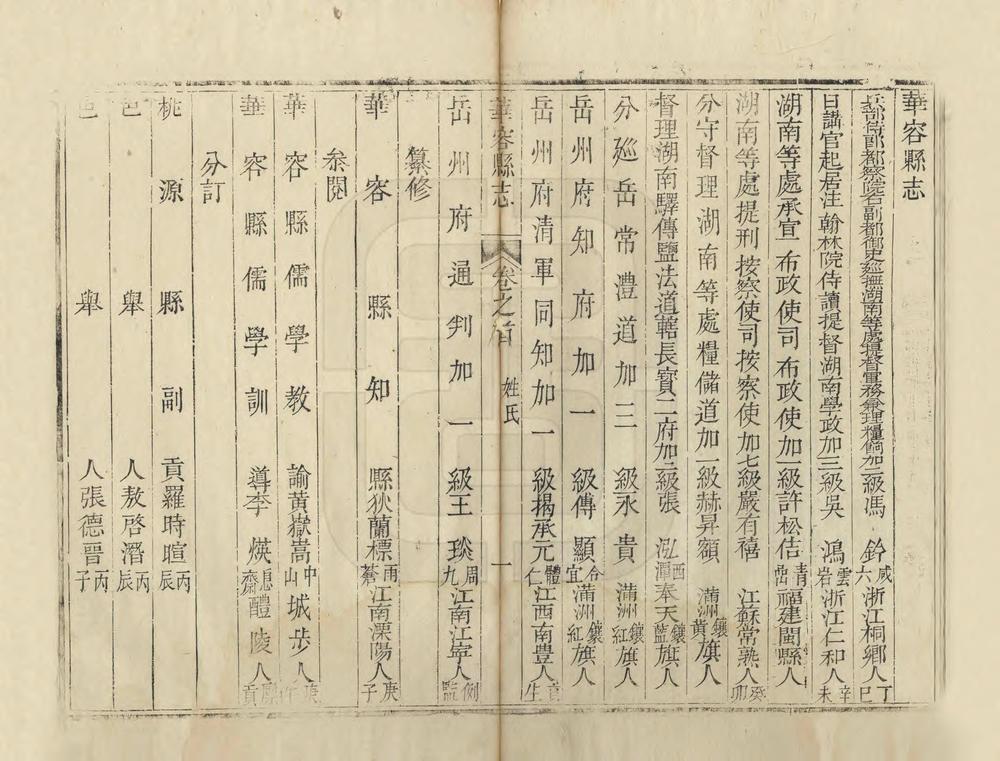 華容縣志
兵部侍郎都察院右副都御史巡撫湖南等處提督軍務兼理糧餉加二級馮 鈐 咸六 浙江桐鄉人 丁巳
日講官起居注翰林院侍讀提督湖南學政加三級吳 鴻 雲岩 浙江仁和人 辛未
湖南等處承宣布政使司布政使加一級許松佶 青 福建閩縣人
湖南等處提刑按察使司按察使加七級嚴有禧 江蘇常熟人 癸卯
分守督理湖南等處糧儲道加一級赫昇額 滿洲鑲黃旗人
督理湖南驛傳鹽法道轄長寶二府加二級張 泓 西潭 奉天鑲藍旗人
分巡岳常澧道加三級永 貴 滿洲鑲紅旗人
岳州府知府加一級傅 顯 令宜 滿洲鑲紅旗人
岳州府清軍同知加一級揭承元 體仁 江西南豊人 生
華容縣志 卷之首 姓氏 一
岳州府通判加一級王 琰 周九 江南江寧人 例監
纂修
華容縣知縣狄蘭標 雨蒼 江南溧陽人 庚子
叅閱
華容縣儒學教諭黃嶽嵩 中山 城步人 庚午
華容縣儒學訓導李 煐 齋 醴陵人 貢
分訂
桃源縣副貢羅時暄 丙辰
邑舉人敖啓潛 丙辰
邑舉人張德晉 丙子